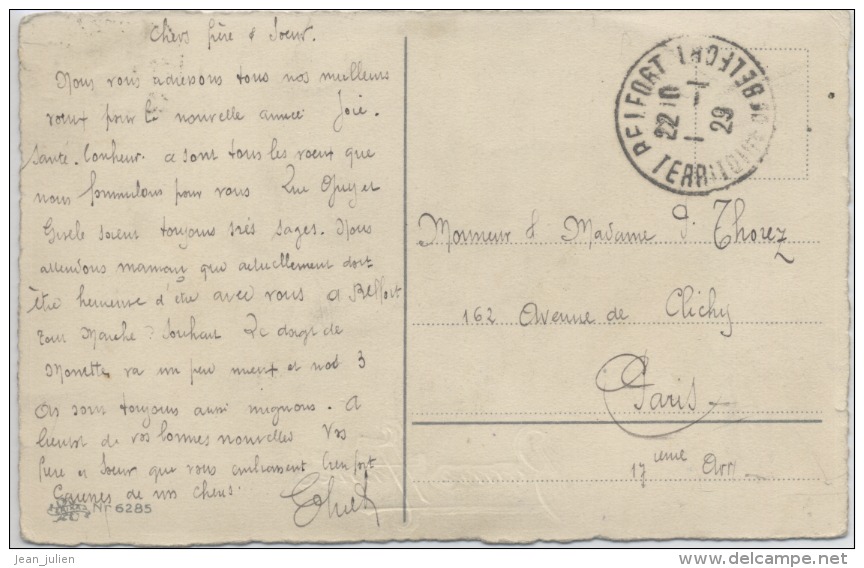 Chers frère & Soeur.
Nous vous adressons tous nos meilleurs
voeux pour la nouvelle année Joie.
Santé. Bonheur. ce sont tous les voeux que
nous formulons pour vous Que et
Gisèle soient toujours très sages. Nous
attendons maman que actuellement doit
être heureuse d'être avec vous a Belfort
tout Marche Souhait Le doigt de
Monette va un peu mieux et nos 3
sont toujours aussi mignons. A
bientôt de vos bonnes nouvelles Vos
frère et Soeur que vous embrassent bien fort
de nos chers.
Nr 6285
BELFORT
TERRITOIRE DE BELFORT
22 10
1 - 1
29
Monsieur & Madame G. Thorez
162 Avenue de Clichy
Paris
17ième Arr
jean_julien
www.delcampe.net